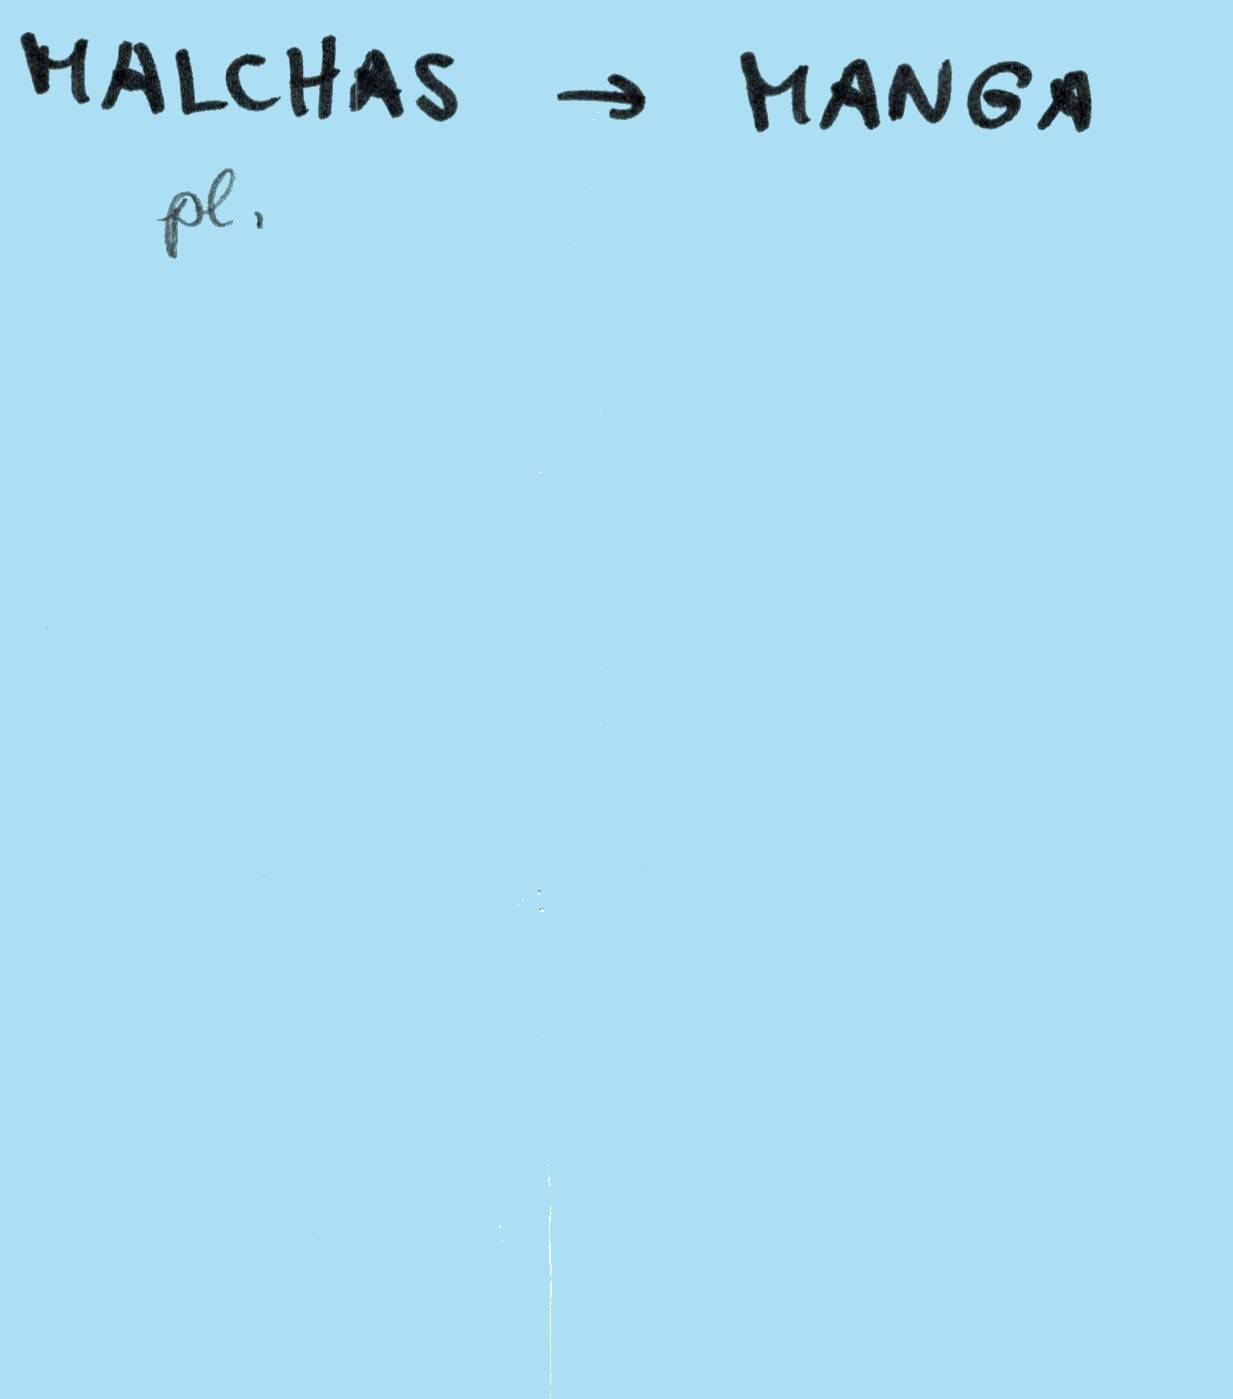 MALCHAS → MANGA
pl.